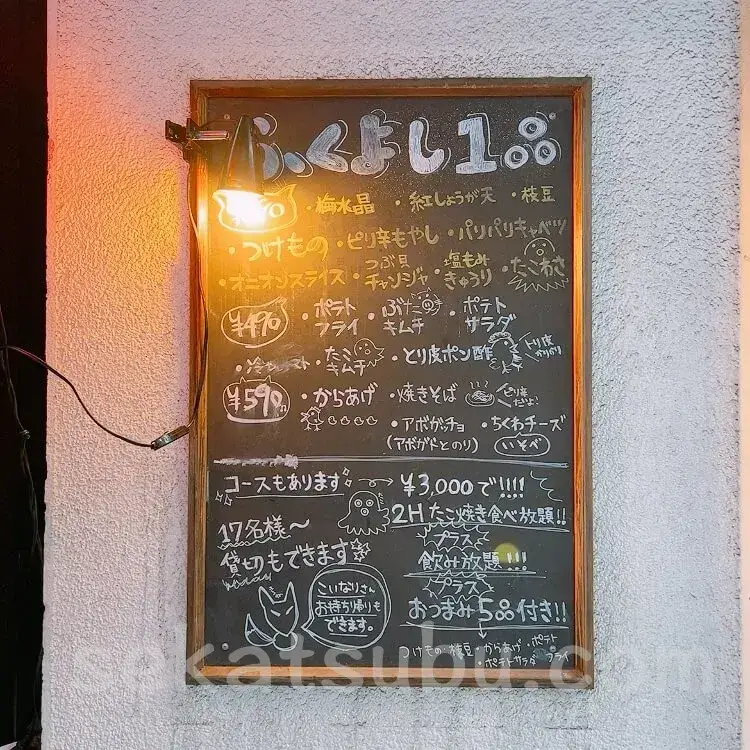 ふくよし1品
・梅水晶 ・紅しょうが天 ・枝豆
・つけもの ・ピリ辛もやし ・パリパリキャベツ
・オニオンスライス ・つぶ貝チャンジャ ・塩もみきゅうり ・たこわさ
¥490 ・ポテトフライ ・ぶたキムチ ・ポテトサラダ
・たこキムチ ・とり皮ポン酢 トリ皮かりかり
¥590 ・からあげ ・焼きそば ピリ辛だよ!
・アボガッチョ ・ちくわチーズ
(アボガドとのり) いそべ
コースもあります → ¥3,000で!!!!
2Hたこ焼き食べ放題!!
プラス
飲み放題!!!
プラス
おつまみ5品付き!!
つけもの・枝豆・からあげ・ポテトフライ
・ポテトサラダ
17名様〜
貸切もできます
こいなりさん
お持ち帰りも
できます。
katsubu.com